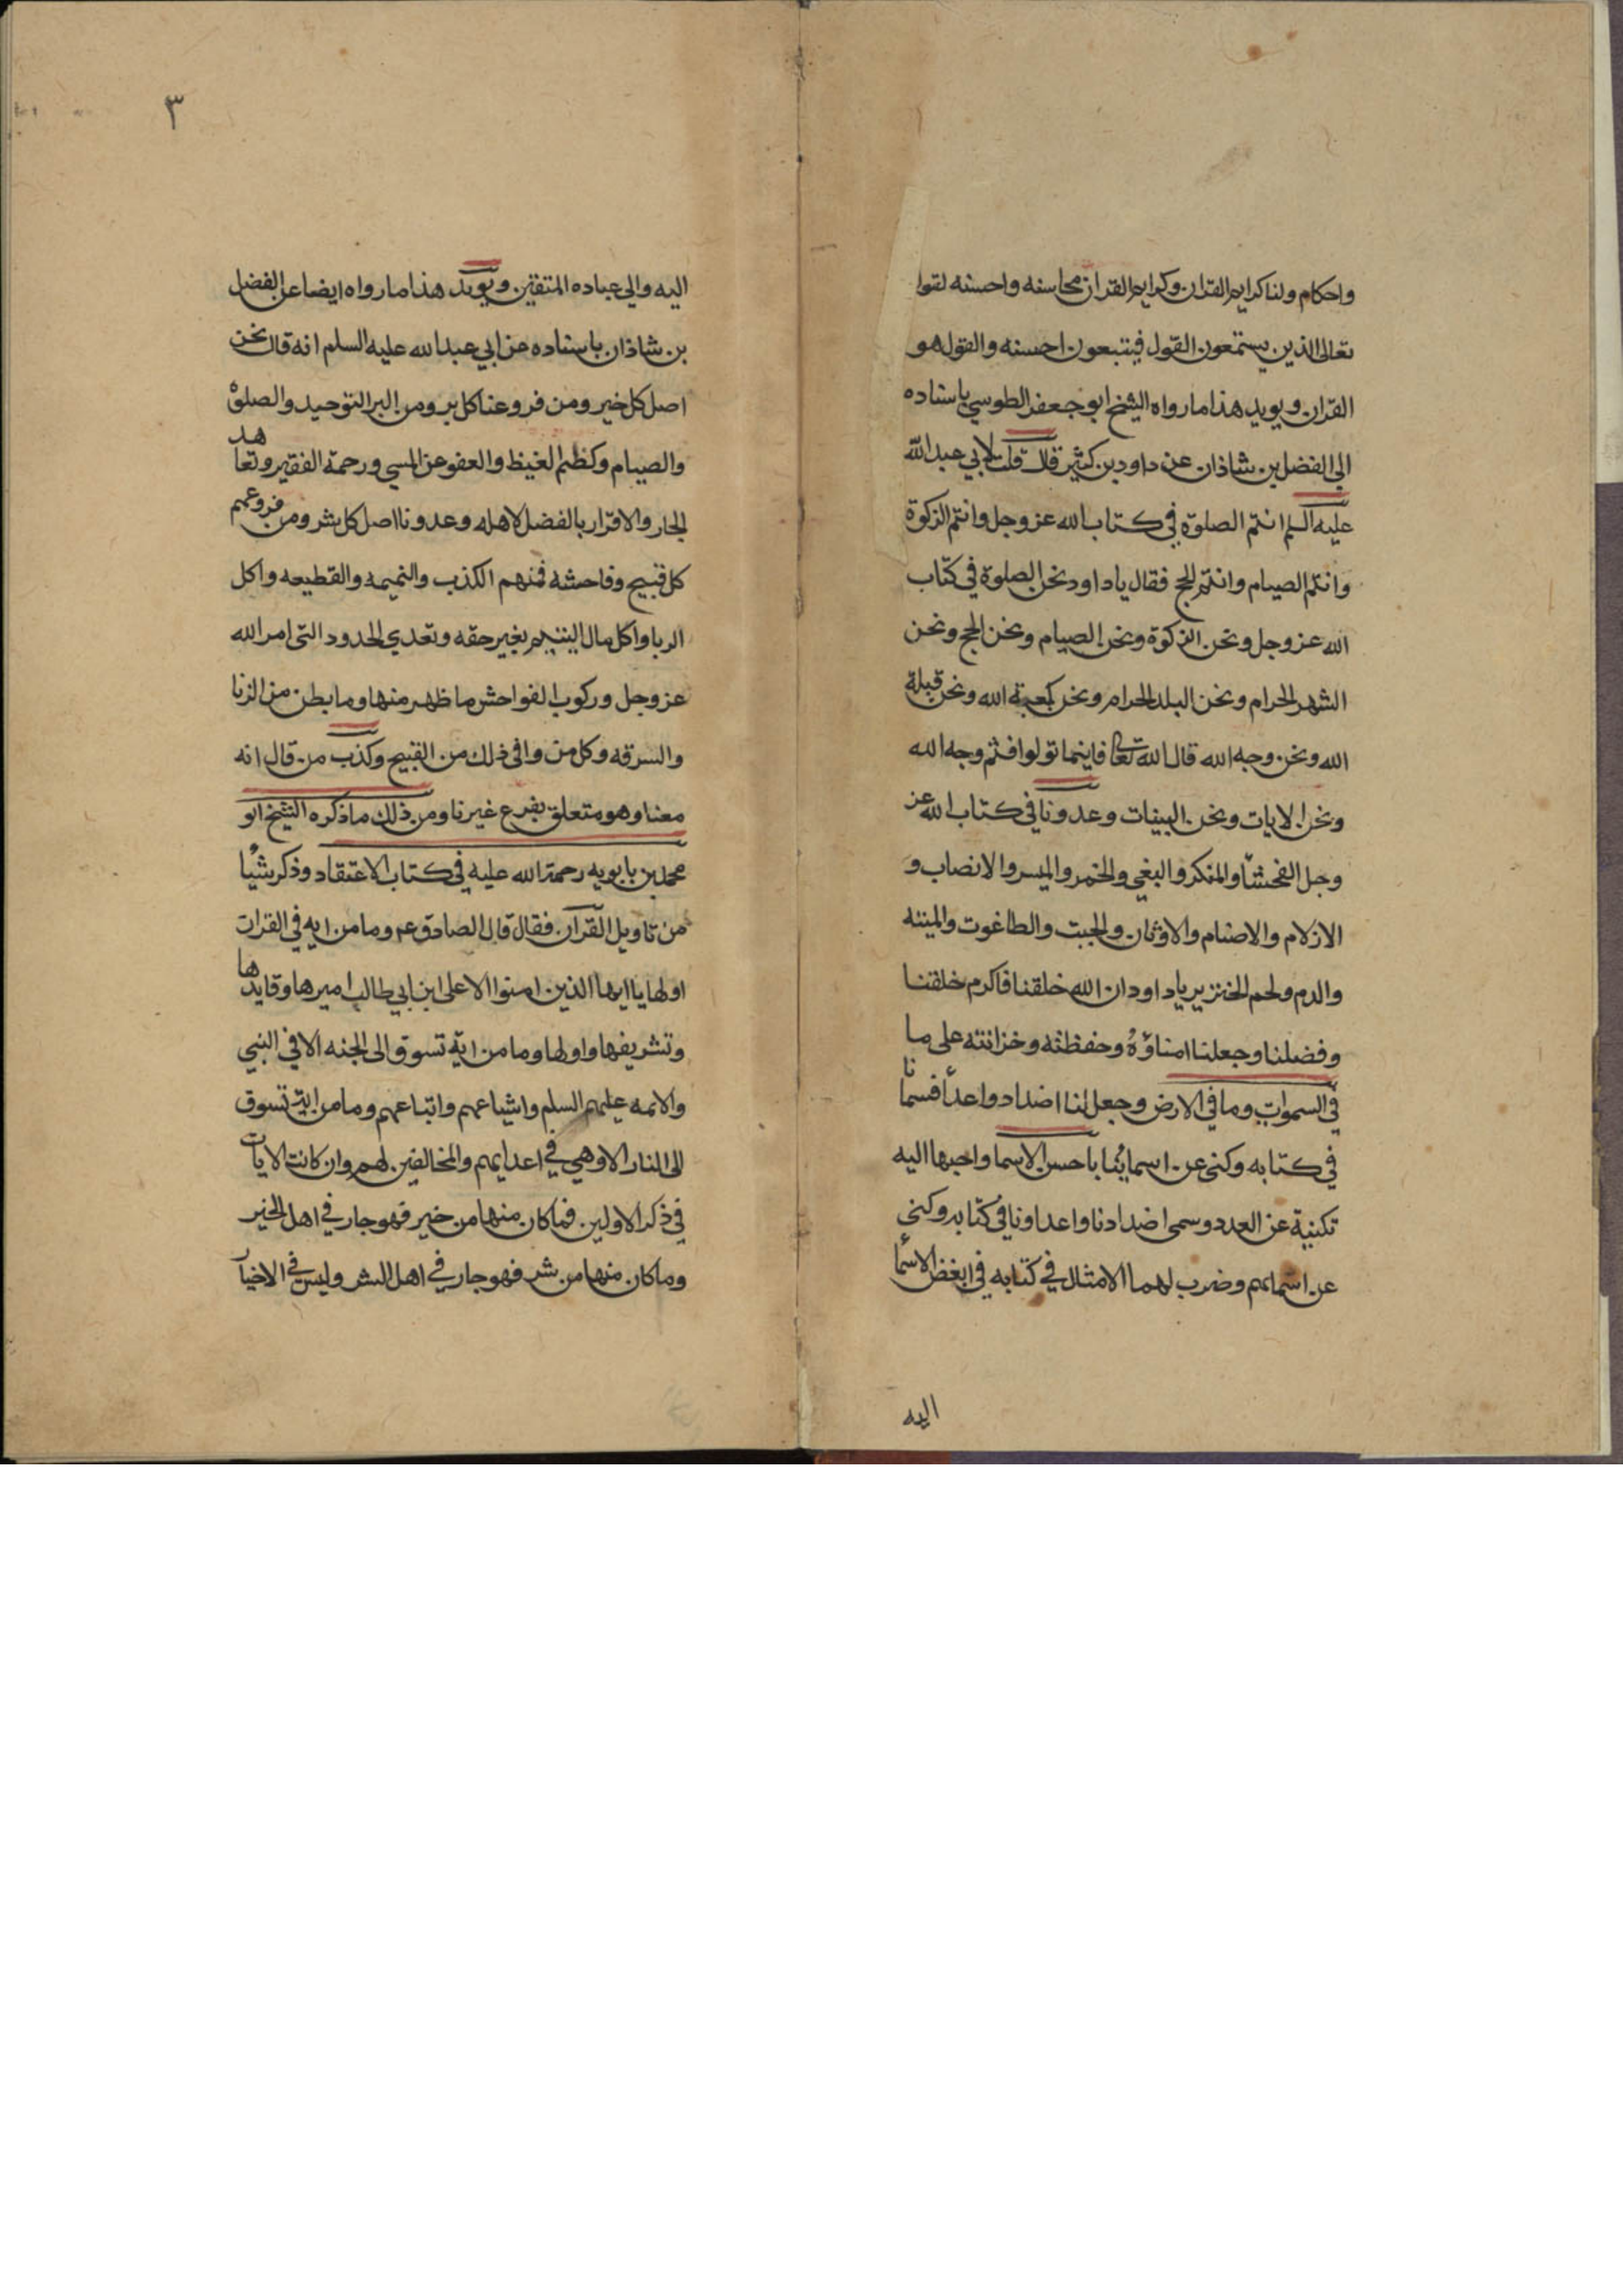 واحكام ولنا كرايم القران وكرايم القران محاسنه واحسنه لقوا
تعالى الذين يستمعون القول فيتبعون احسنه والقول هو
القران ويويد هذا ما رواه الشيخ ابو جعفر الطوسي باسناده
الى الفضل بن شاذان عن داود بن كثير قال قلت لابي عبد الله
عليه السلم انتم الصلوة في كتاب الله عز وجل وانتم الزكوة
وانتم الصيام وانتم الحج فقال يا داود نحن الصلوة في كتاب
الله عز وجل ونحن الزكوة ونحن الصيام ونحن الحج ونحن
الشهر الحرام ونحن البلد الحرام ونحن كعبة الله ونحن قبلة
الله ونحن وجه الله قال الله تعالى فاينما تولوا فثم وجه الله
ونحن الايات ونحن البينات وعدونا في كتاب الله عز
وجل الفحشا والمنكر والبغي والخمر والميسر والانصاب و
الازلام والاصنام والاوثان والجبت والطاغوت والميته
والدم ولحم الخنزير يا داود ان الله خلقنا فاكرم خلقنا
وفضلنا وجعلنا امناؤه وحفظته وخزانته على ما
في السموات وما في الارض وجعل لنا اضداد واعدأ فسمانا
في كتابه وكنى عن اسمائنا باحسن الاسما واحبها اليه
تكنية عن العدد وسمى اضدادنا واعداونا في كتابه وكنى
عن اسمايهم وضرب لهما الامثال في كتابه في ابغض الاسما
اليه
٣
اليه والى عباده المتقين ويويد هذا ما رواه ايضا عن الفضل
بن شاذان باسناده عن ابي عبد الله عليه السلم انه قال نحن
اصل كل خير ومن فروعنا كل بر ومن البر التوحيد والصلوة
والصيام وكظم الغيظ والعفو عن المسي ورحمة الفقير وتعاهد
الجار والاقرار بالفضل لاهله وعدونا اصل كل شر ومن فروعهم
كل قبيح وفاحشه فمنهم الكذب والنميمه والقطيعه واكل
الربا واكل مال اليتيم بغير حقه وتعدي الحدود التى امر الله
عز وجل وركوب الفواحش ما ظهر منها وما بطن من الزنا
والسرقه وكل من وافى ذلك من القبيح وكذب من قال انه
معنا وهو متعلق بفرع غيرنا ومن ذلك ما ذكره الشيخ ابو
محمد بن بابويه رحمة الله عليه في كتاب الاعتقاد وذكر شيًا
من تاويل القرآن فقال قال الصادق عم وما من ايه في القران
اولها يا ايها الذين امنوا الا على ابن ابي طالب اميرها وقايدها
وتشريفها واولها وما من اية تسوق الى الجنه الا في النبي
والائمه عليهم السلم واشياعهم واتباعهم وما من اية تسوق
الى النار الا وهي في اعدايهم والمخالفين لهم وان كانت الايات
في ذكر الاولين فما كان منها من خير فهو جار في اهل الخير
وما كان منها من شر فهو جار في اهل الشر وليس في الاخيار